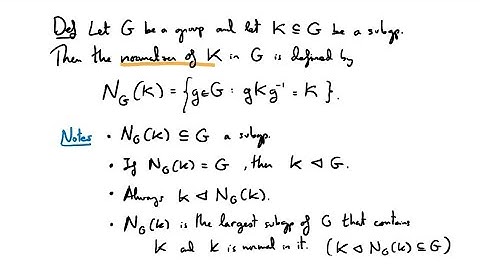 Def Let G be a group and let K ⊆ G be a subgp.
Then the normaliser of K in G is defined by
N_G(K) = {g∈G : gKg⁻¹ = K}.
Notes • N_G(K) ⊆ G a subgp.
• If N_G(K) = G, then K ◁ G.
• Always K ◁ N_G(K).
• N_G(K) is the largest subgp of G that contains
K and K is normal in it. (K ◁ N_G(K) ⊆ G)